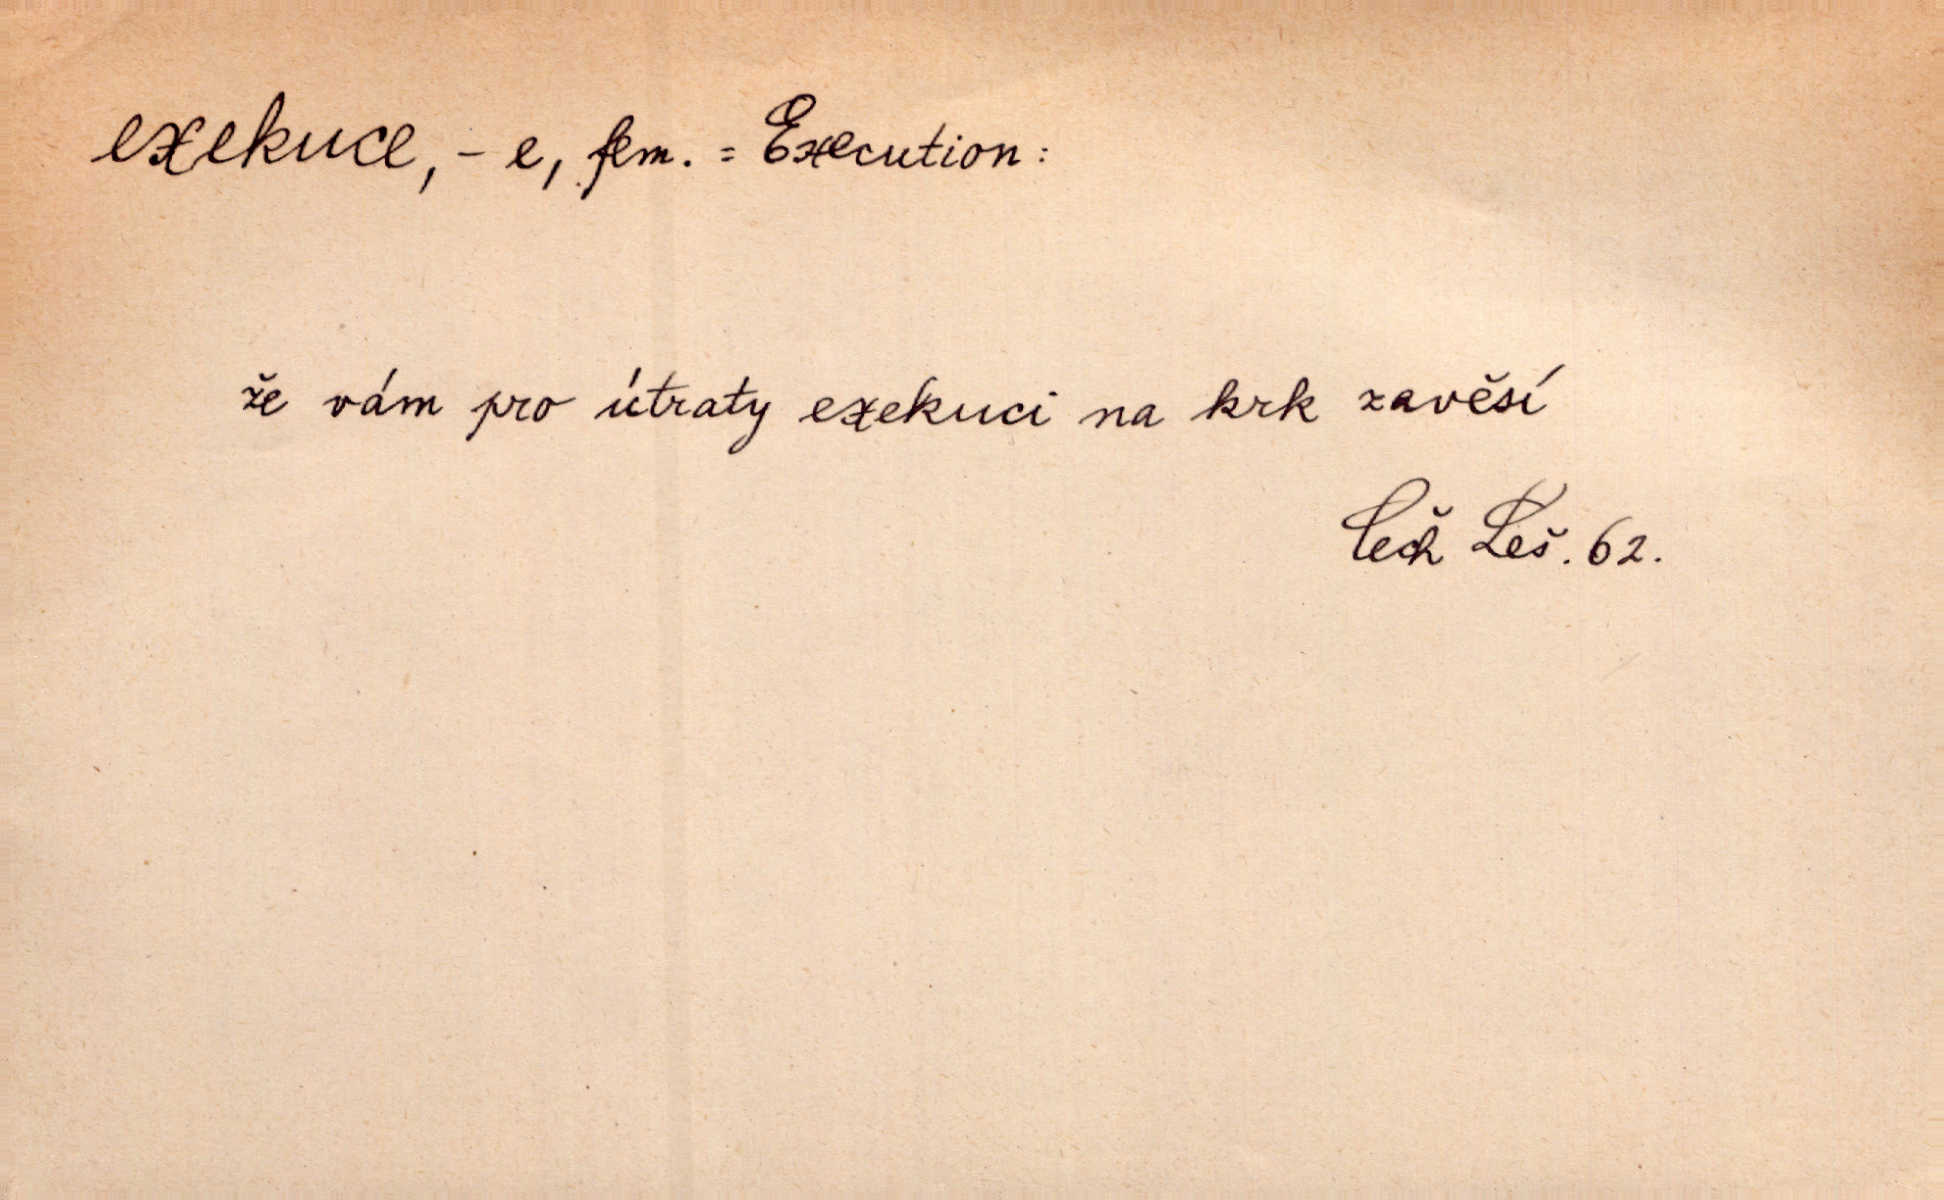 exekuce, - e, fem. = Execution:
že vám pro útraty exekuci na krk zavěsí
Čech Leš. 62.